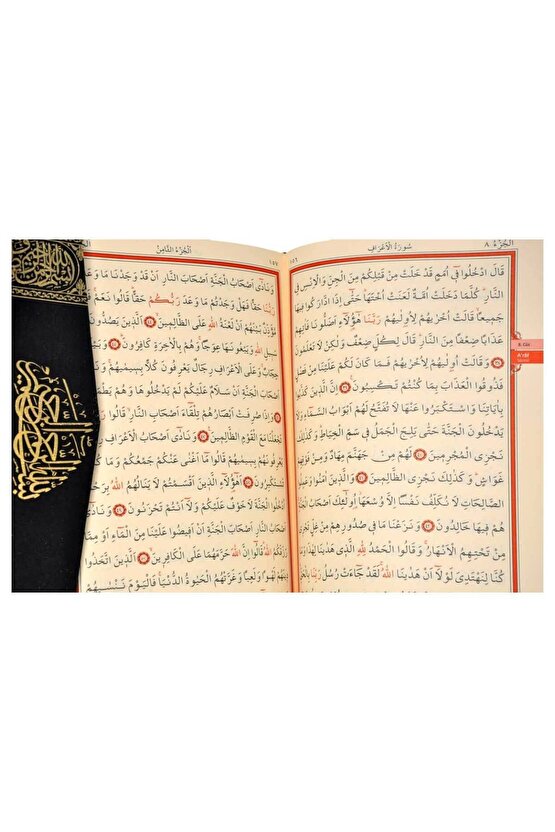 الجزء ٨
سورة الاعراف
١٥٦
قَالَ ادْخُلُوا فٖٓي اُمَمٍ قَدْ خَلَتْ مِنْ قَبْلِكُمْ مِنَ الْجِنِّ وَالْاِنْسِ فِي
النَّارِ كُلَّمَا دَخَلَتْ اُمَّةٌ لَعَنَتْ اُخْتَهَا حَتّٰٓى اِذَا ادَّارَكُوا فٖيهَا
جَمٖيعًا قَالَتْ اُخْرٰيهُمْ لِاُو۫لٰيهُمْ رَبَّنَا هٰٓؤُ۬لَٓاءِ اَضَلُّونَا فَاٰتِهِمْ
عَذَابًا ضِعْفًا مِنَ النَّارِ قَالَ لِكُلٍّ ضِعْفٌ وَلٰكِنْ لَا تَعْلَمُونَ
٣٨ وَقَالَتْ اُو۫لٰيهُمْ لِاُخْرٰيهُمْ فَمَا كَانَ لَكُمْ عَلَيْنَا مِنْ فَضْلٍ
فَذُوقُوا الْعَذَابَ بِمَا كُنْتُمْ تَكْسِبُونَ ٣٩ اِنَّ الَّذٖينَ كَذَّبُوا
بِاٰيَاتِنَا وَاسْتَكْبَرُوا عَنْهَا لَا تُفَتَّحُ لَهُمْ اَبْوَابُ السَّمَٓاءِ وَلَا
يَدْخُلُونَ الْجَنَّةَ حَتّٰى يَلِجَ الْجَمَلُ فٖي سَمِّ الْخِيَاطِ وَكَذٰلِكَ
نَجْزِي الْمُجْرِمٖينَ ٤٠ لَهُمْ مِنْ جَهَنَّمَ مِهَادٌ وَمِنْ فَوْقِهِمْ
غَوَاشٍ وَكَذٰلِكَ نَجْزِي الظَّالِمٖينَ ٤١ وَالَّذٖينَ اٰمَنُوا وَعَمِلُوا
الصَّالِحَاتِ لَا نُكَلِّفُ نَفْسًا اِلَّا وُسْعَهَا اُو۬لٰٓئِكَ اَصْحَابُ الْجَنَّةِ
هُمْ فٖيهَا خَالِدُونَ ٤٢ وَنَزَعْنَا مَا فٖي صُدُورِهِمْ مِنْ غِلٍّ تَجْرٖي
مِنْ تَحْتِهِمُ الْاَنْهَارُ وَقَالُوا الْحَمْدُ لِلّٰهِ الَّذٖي هَدٰينَا لِهٰذَا وَمَا
كُنَّا لِنَهْتَدِيَ لَوْلَٓا اَنْ هَدٰينَا اللّٰهُ لَقَدْ جَٓاءَتْ رُسُلُ رَبِّنَا بِالْحَقِّ
8. Cüz
A'râf
الجزء الثامن
١٥٧
وَنَادٰٓى اَصْحَابُ الْجَنَّةِ اَصْحَابَ النَّارِ اَنْ قَدْ وَجَدْنَا مَا وَعَدَنَا
رَبُّنَا حَقًّا فَهَلْ وَجَدْتُمْ مَا وَعَدَ رَبُّكُمْ حَقًّا قَالُوا نَعَمْ
مُؤَذِّنٌ بَيْنَهُمْ اَنْ لَعْنَةُ اللّٰهِ عَلَى الظَّالِمٖينَ ٤٤ اَلَّذٖينَ يَصُدُّونَ
سَبٖيلِ اللّٰهِ وَيَبْغُونَهَا عِوَجًا وَهُمْ بِالْاٰخِرَةِ كَافِرُونَ ٤٥
حِجَابٌ وَعَلَى الْاَعْرَافِ رِجَالٌ يَعْرِفُونَ كُلًّا بِسٖيمٰيهُمْ
اَصْحَابَ الْجَنَّةِ اَنْ سَلَامٌ عَلَيْكُمْ لَمْ يَدْخُلُوهَا وَهُمْ يَطْمَعُونَ
٤٦ وَاِذَا صُرِفَتْ اَبْصَارُهُمْ تِلْقَٓاءَ اَصْحَابِ النَّارِ قَالُوا رَبَّنَا
تَجْعَلْنَا مَعَ الْقَوْمِ الظَّالِمٖينَ ٤٧ وَنَادٰٓى اَصْحَابُ الْاَعْرَافِ
يَعْرِفُونَهُمْ بِسٖيمٰيهُمْ قَالُوا مَٓا اَغْنٰى عَنْكُمْ جَمْعُكُمْ وَمَا كُنْتُمْ
تَسْتَكْبِرُونَ ٤٨ اَهٰٓؤُ۬لَٓاءِ الَّذٖينَ اَقْسَمْتُمْ لَا يَنَالُهُمُ اللّٰهُ بِرَحْمَةٍ
اُدْخُلُوا الْجَنَّةَ لَا خَوْفٌ عَلَيْكُمْ وَلَٓا اَنْتُمْ تَحْزَنُونَ ٤٩ وَنَادٰٓى
اَصْحَابُ النَّارِ اَصْحَابَ الْجَنَّةِ اَنْ اَفٖيضُوا عَلَيْنَا مِنَ الْمَٓاءِ اَوْ مِمَّا
رَزَقَكُمُ اللّٰهُ قَالُٓوا اِنَّ اللّٰهَ حَرَّمَهُمَا عَلَى الْكَافِرٖينَ ٥٠ اَلَّذٖينَ اتَّخَذُوا
دٖينَهُمْ لَهْوًا وَلَعِبًا وَغَرَّتْهُمُ الْحَيٰوةُ الدُّنْيَا فَالْيَوْمَ نَنْسٰيهُمْ